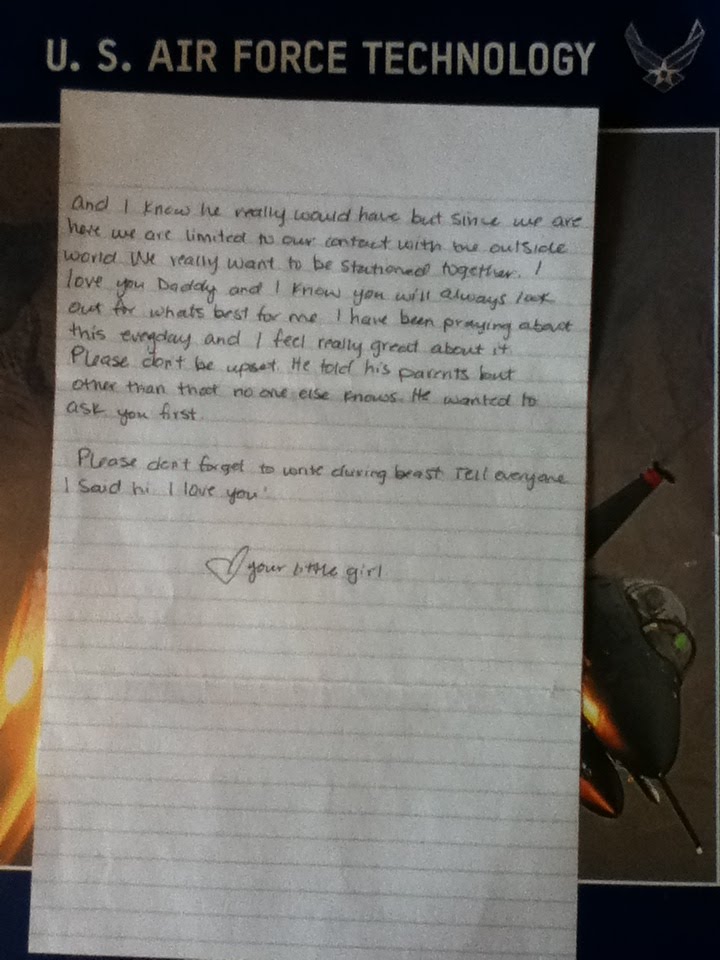 U. S. AIR FORCE TECHNOLOGY
and I know he really would have but since we are
here we are limited to our contact with the outside
world We really want to be stationed together. I
love you Daddy and I know you will always look
out for whats best for me I have been praying about
this everyday and I feel really great about it
Please don't be upset. He told his parents but
other than that no one else knows. He wanted to
ask you first.
Please don't forget to write during beast. Tell everyone
I said hi. I love you!
your little girl